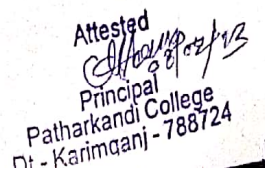 Attested
Principal
Patharkandi College
Dt - Karimganj - 788724